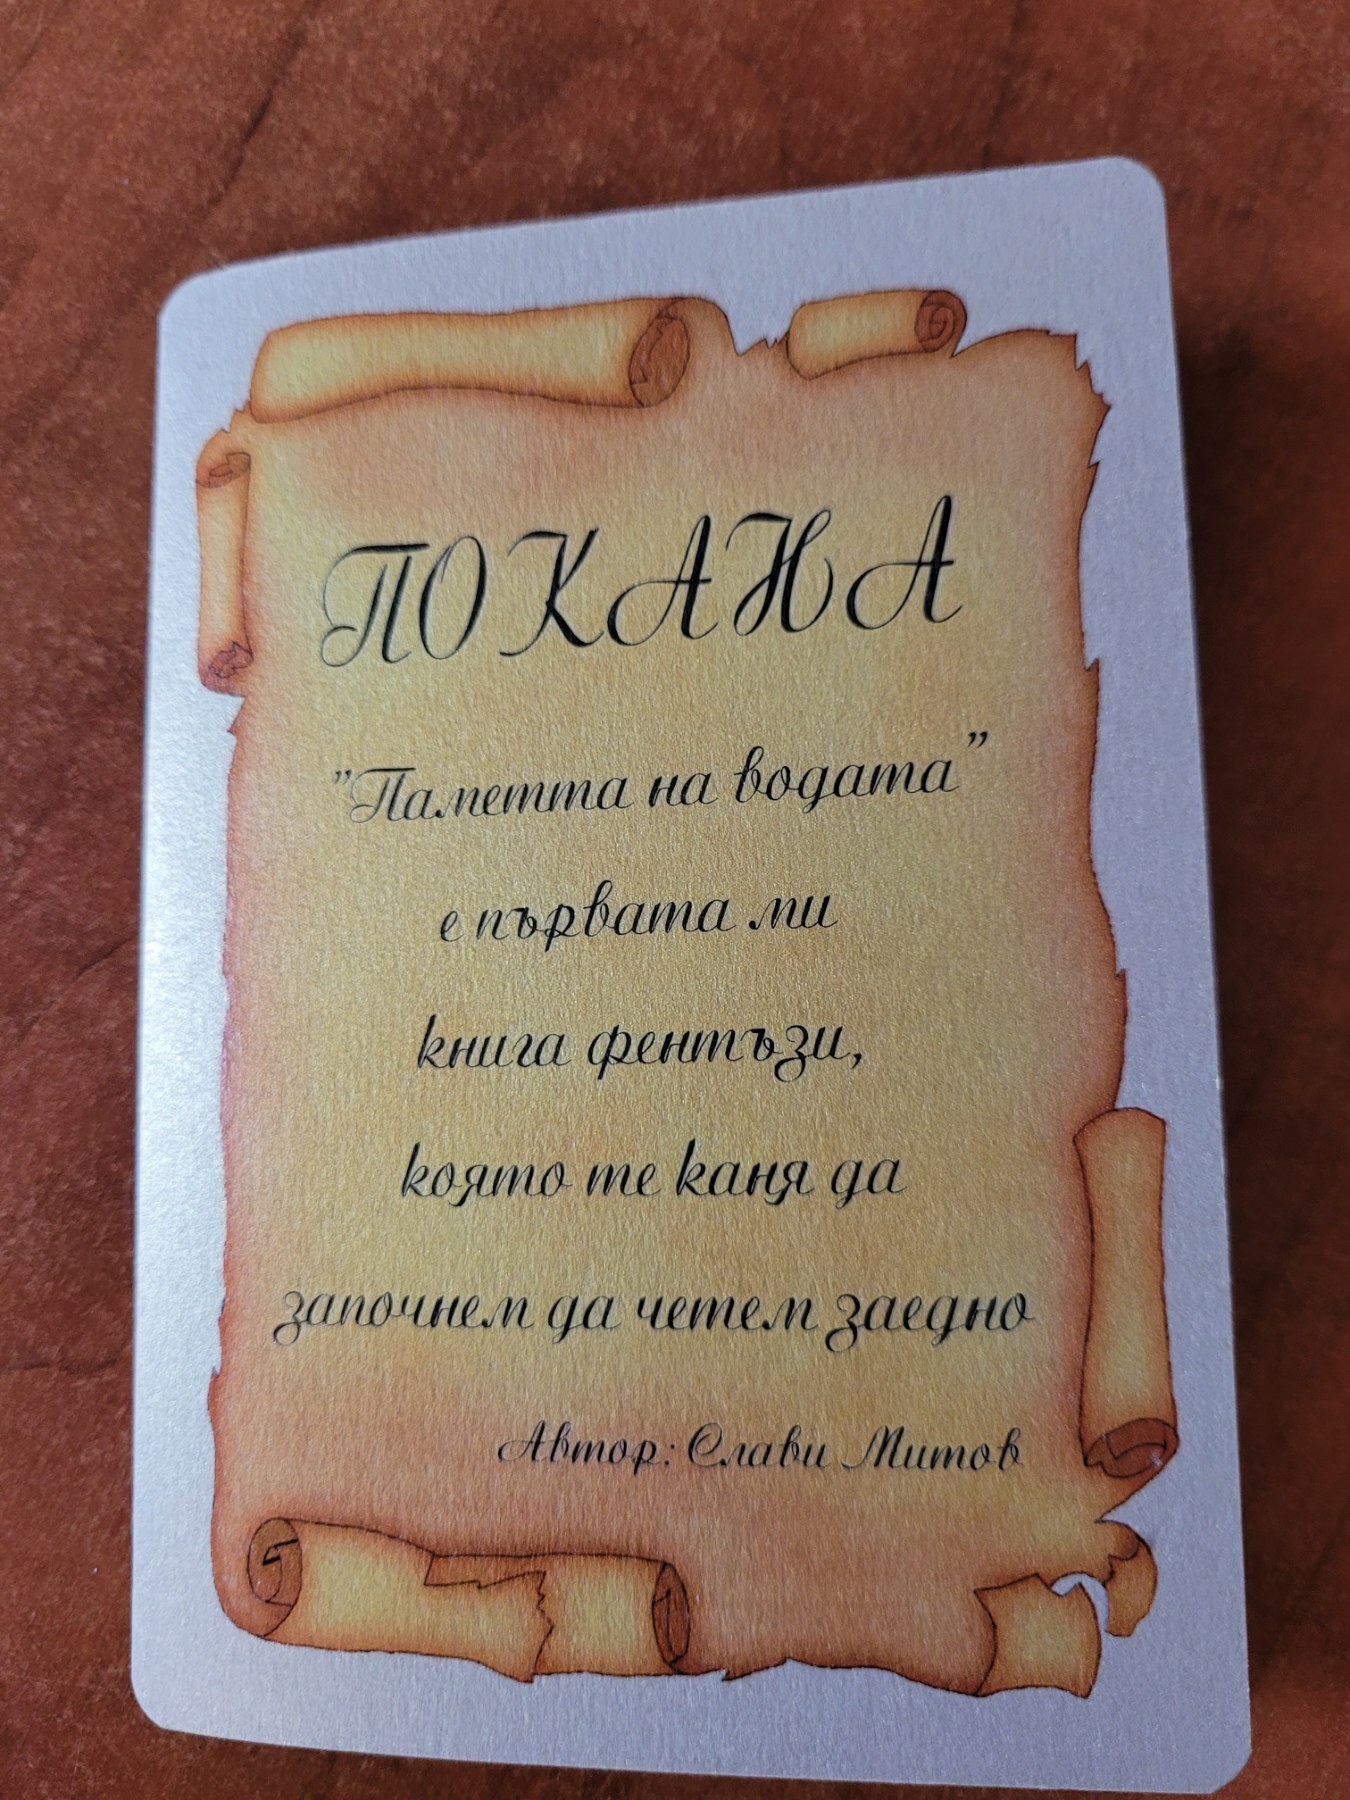 ПОКАНА
"Паметта на водата"
е първата ми
книга фентъзи,
която те каня да
започнем да четем заедно
Автор: Слави Митов